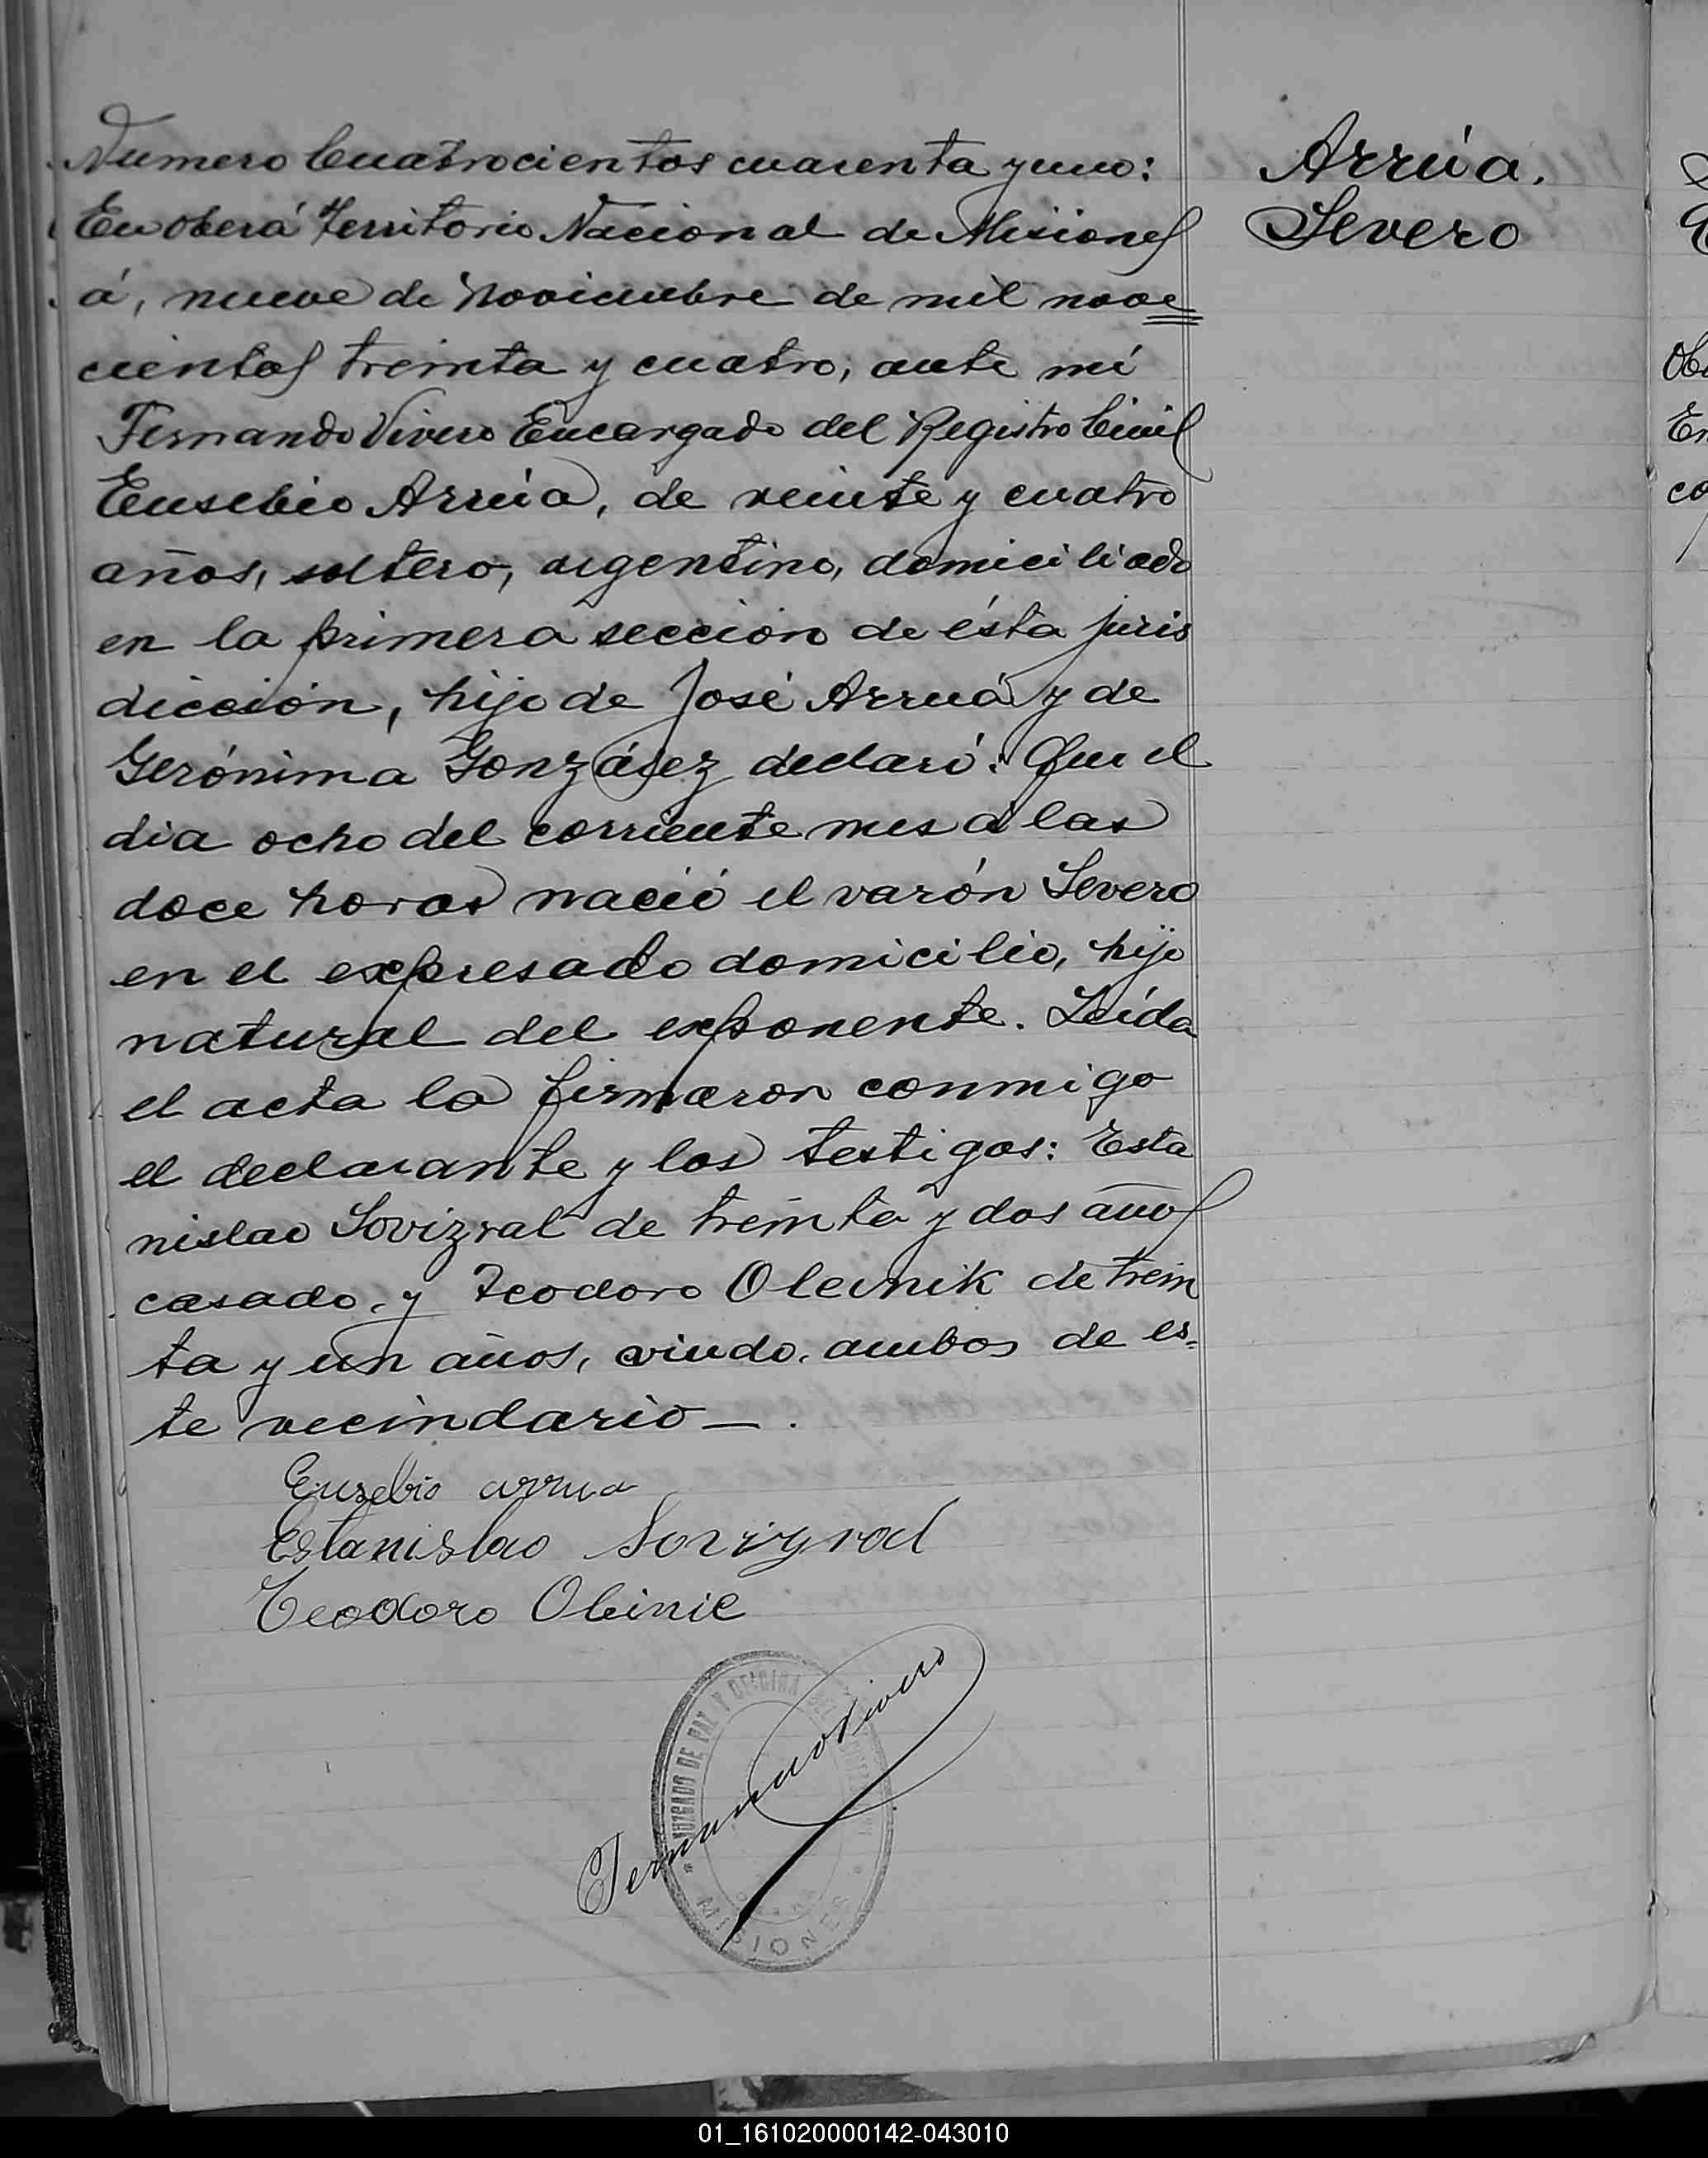 Numero Cuatrocientos cuarenta y uno:
En Oberá Territorio Nacional de Misiones
á, nueve de Noviembre de mil nove
cientos treinta y cuatro, ante mí
Fernando Vivero Encargado del Registro Civil
Eusebio Arrúa, de veinte y cuatro
años, soltero, argentino, domiciliado
en la primera sección de ésta juris
dicción, hijo de José Arruá y de
Gerónima González declaró: Que el
dia ocho del corriente mes á las
doce horas nació el varón Severo
en el expresado domicilio, hijo
natural del exponente. Leída
el acta la firmaron conmigo
el declarante y los testigos: Esta
nislao Sovizral de treinta y dos años
casado, y Teodoro Oleinik de trein
ta y un años, viudo, ambos de es=
te vecindario—.
Arrúa.
Severo
Eusebio arrua
Estanislao Sovizral
Teodoro Oleinic
Fernando Vivero
JUZGADO DE PAZ Y OFICINA
MISIONES
01_161020000142-043010